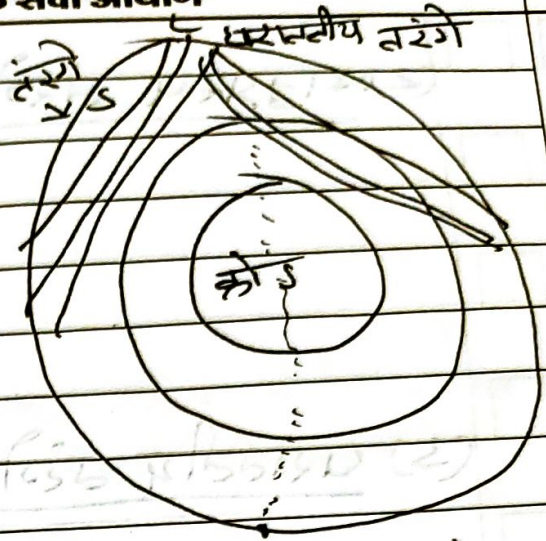 सेवा आयोग
धरातलीय तरंगे
तंरगे
S
क्रोड